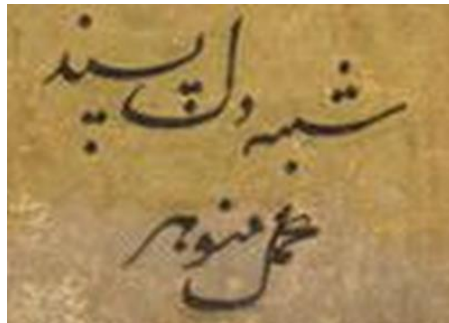 شبیه دل پسند
عمل منوهر